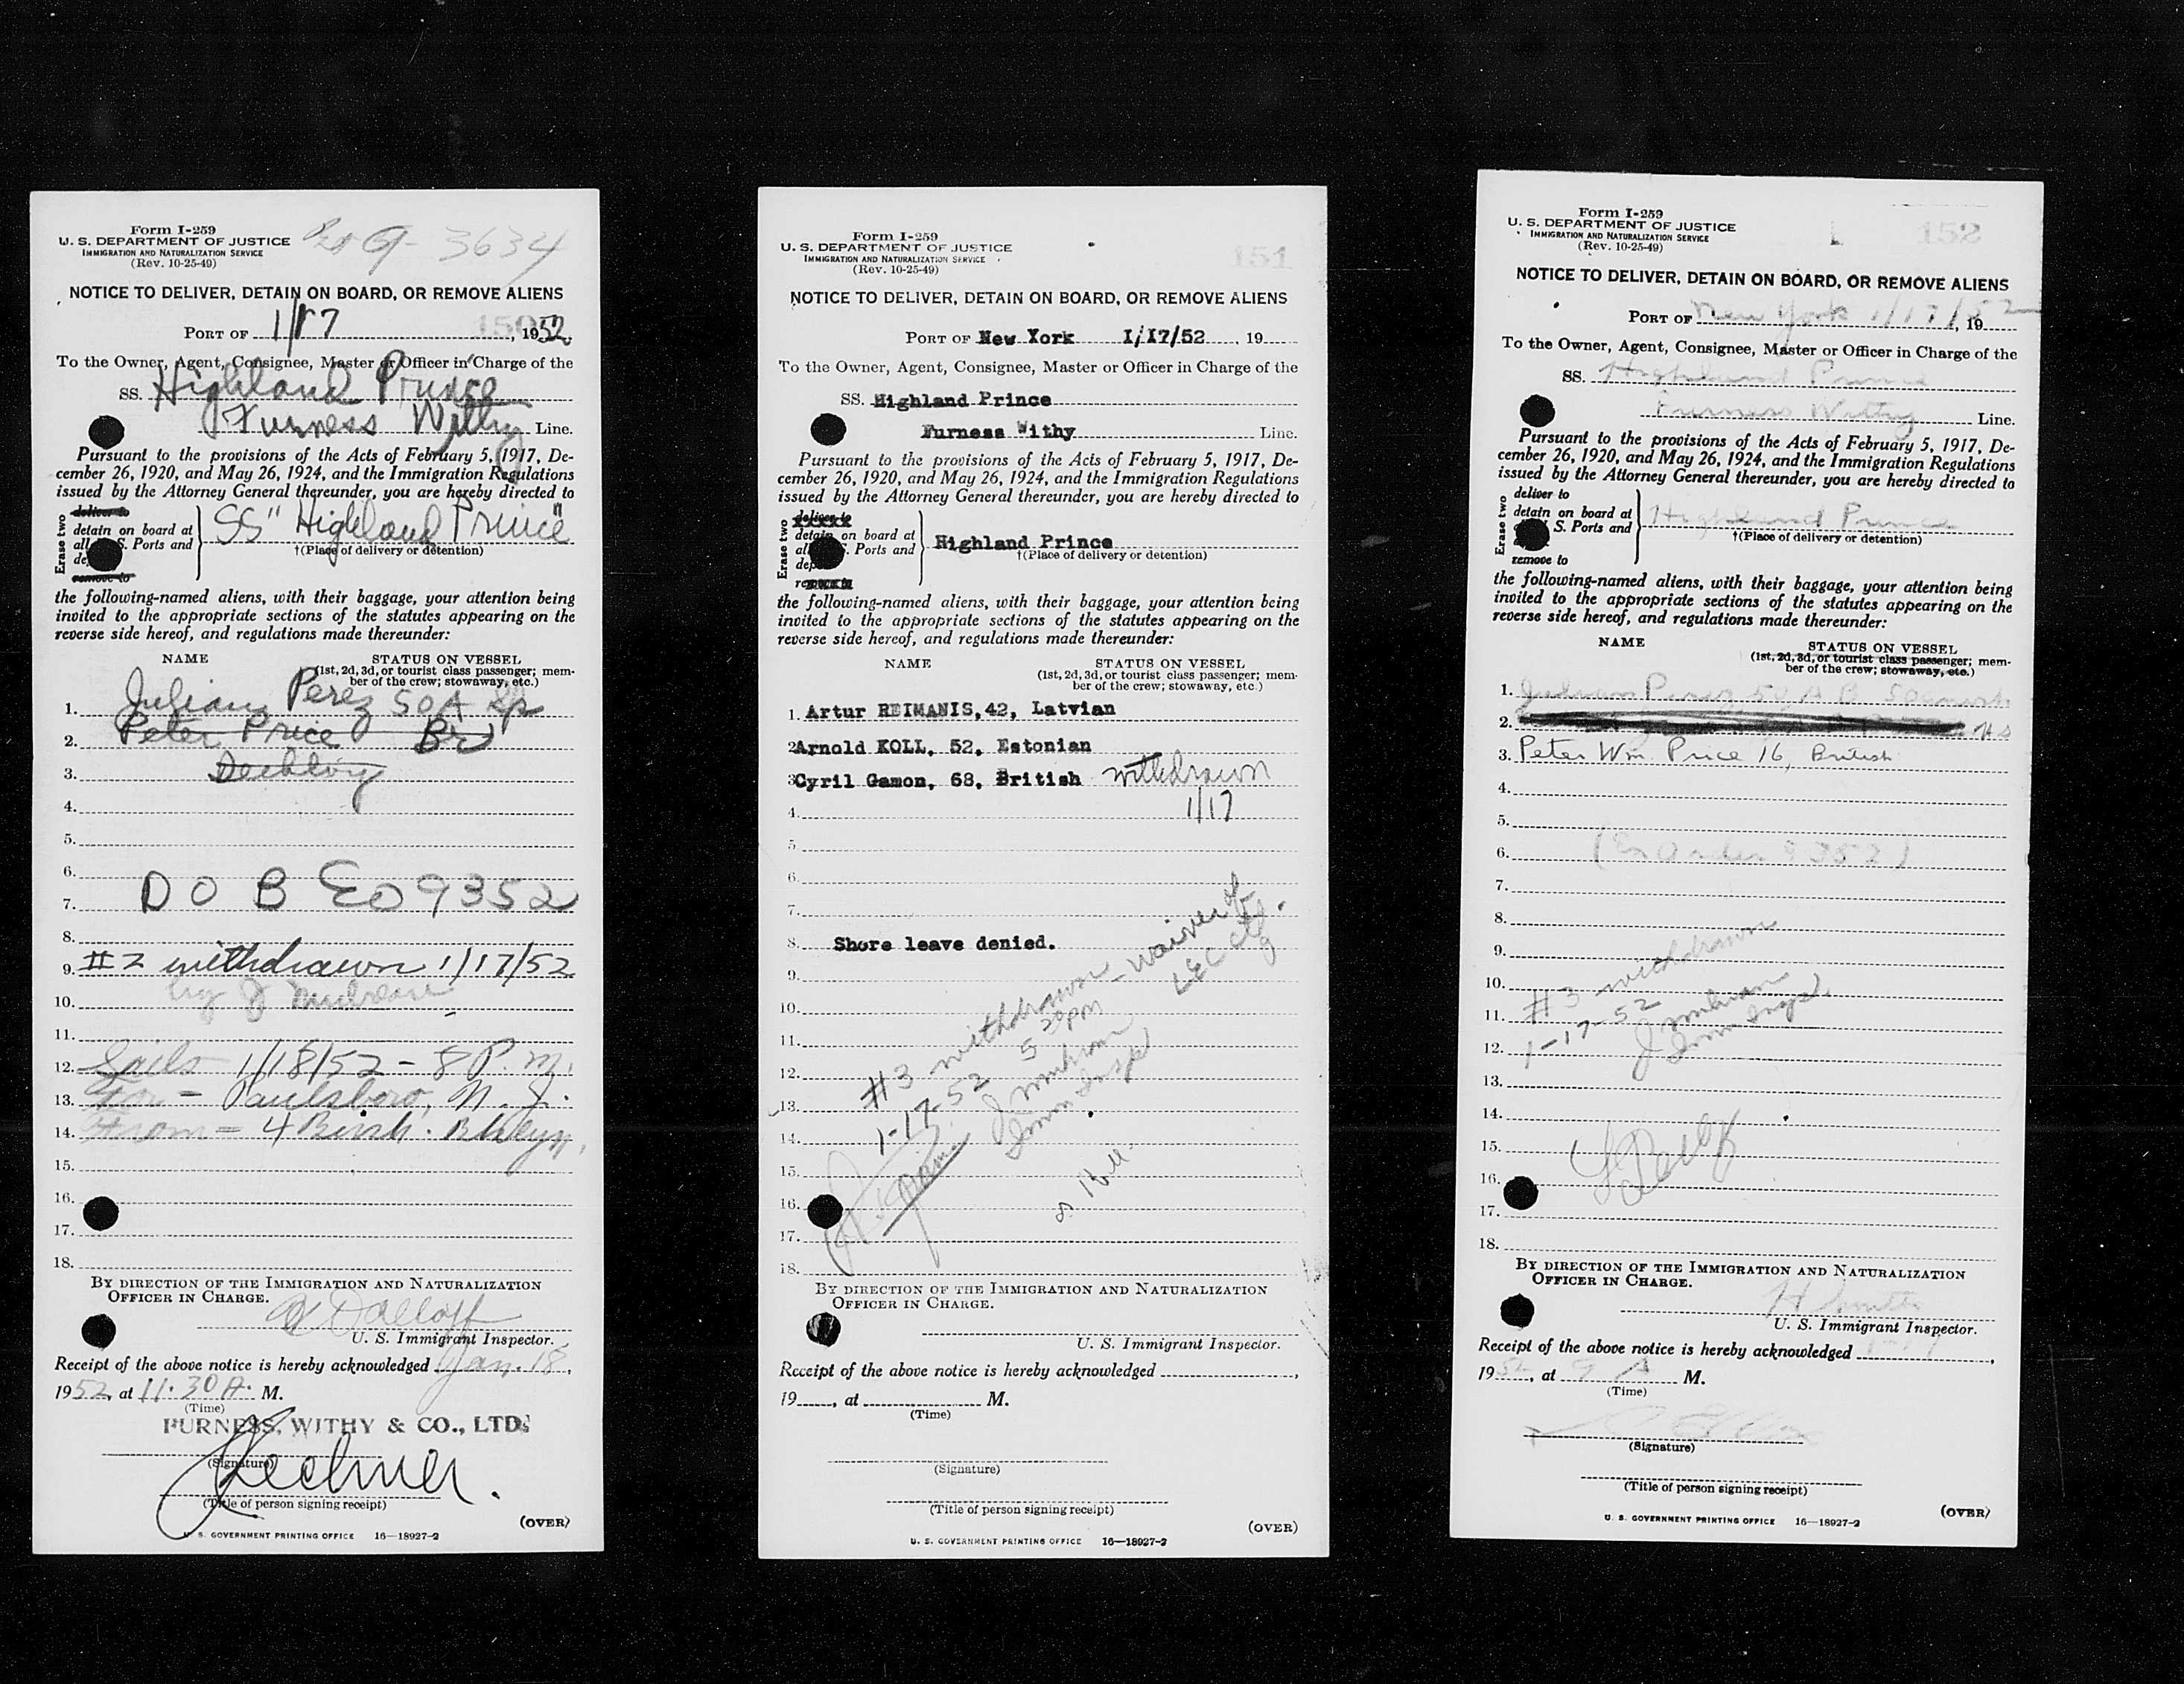 Form I-259
U. S. DEPARTMENT OF JUSTICE
IMMIGRATION AND NATURALIZATION SERVICE
(Rev. 10-25-49)
3634
NOTICE TO DELIVER, DETAIN ON BOARD, OR REMOVE ALIENS
PORT OF 1/17 150, 1952
To the Owner, Agent, Consignee, Master or Officer in Charge of the
SS. Highland Prince
Furness Withy Line.
Pursuant to the provisions of the Acts of February 5, 1917, De-
cember 26, 1920, and May 26, 1924, and the Immigration Regulations
issued by the Attorney General thereunder, you are hereby directed to
Erase two
deliver to
detain on board at
all S. Ports and
de
remove to
SS "Highland Prince"
†(Place of delivery or detention)
the following-named aliens, with their baggage, your attention being
invited to the appropriate sections of the statutes appearing on the
reverse side hereof, and regulations made thereunder:
NAME STATUS ON VESSEL
(1st, 2d, 3d, or tourist class passenger; mem-
ber of the crew; stowaway, etc.)
1. Julian Perez 50 A Sp
2. Peter Price Br
3.
4.
5.
6.
7. D O B EO 9352
8.
9. #2 withdrawn 1/17/52
10. by J
11.
12. Sails 1/18/52 - 8 P. M.
13. For - Paulsboro, N. J.
14. From = 4
15.
16.
17.
18.
BY DIRECTION OF THE IMMIGRATION AND NATURALIZATION
OFFICER IN CHARGE.
U. S. Immigrant Inspector.
Receipt of the above notice is hereby acknowledged Jan. 18,
1952, at 11.30 A. M.
(Time)
FURNESS, WITHY & CO., LTD.
(Signature)
(Title of person signing receipt)
(OVER)
U. S. GOVERNMENT PRINTING OFFICE 16—18927-2
Form I-259
U. S. DEPARTMENT OF JUSTICE
IMMIGRATION AND NATURALIZATION SERVICE
(Rev. 10-25-49)
151
NOTICE TO DELIVER, DETAIN ON BOARD, OR REMOVE ALIENS
PORT OF New York 1/17/52, 19
To the Owner, Agent, Consignee, Master or Officer in Charge of the
SS. Highland Prince
Furness Withy Line.
Pursuant to the provisions of the Acts of February 5, 1917, De-
cember 26, 1920, and May 26, 1924, and the Immigration Regulations
issued by the Attorney General thereunder, you are hereby directed to
Erase two
deliver to
detain on board at
al . Ports and
dep
remove to
Highland Prince
†(Place of delivery or detention)
the following-named aliens, with their baggage, your attention being
invited to the appropriate sections of the statutes appearing on the
reverse side hereof, and regulations made thereunder:
NAME STATUS ON VESSEL
(1st, 2d, 3d, or tourist class passenger; mem-
ber of the crew; stowaway, etc.)
1. Artur REIMANIS, 42, Latvian
2 Arnold KOLL, 52, Estonian
3 Cyril Gamon, 68, British withdrawn
4. 1/17
5.
6.
7.
8. Shore leave denied.
9.
10.
11.
12.
13.
14.
15.
16.
17.
18.
#3 withdrawn - waiver of
1-17-52 5 20 PM
J
Imm Insp
BY DIRECTION OF THE IMMIGRATION AND NATURALIZATION
OFFICER IN CHARGE.
U. S. Immigrant Inspector.
Receipt of the above notice is hereby acknowledged ,
19 , at M.
(Time)
(Signature)
(Title of person signing receipt)
(OVER)
U. S. GOVERNMENT PRINTING OFFICE 16—18927-2
Form I-259
U. S. DEPARTMENT OF JUSTICE
IMMIGRATION AND NATURALIZATION SERVICE
(Rev. 10-25-49)
152
NOTICE TO DELIVER, DETAIN ON BOARD, OR REMOVE ALIENS
PORT OF New York 1/17/52, 19
To the Owner, Agent, Consignee, Master or Officer in Charge of the
SS. Highland Prince
Furness Withy Line.
Pursuant to the provisions of the Acts of February 5, 1917, De-
cember 26, 1920, and May 26, 1924, and the Immigration Regulations
issued by the Attorney General thereunder, you are hereby directed to
Erase two
deliver to
detain on board at
S. Ports and
remove to
Highland Prince
†(Place of delivery or detention)
the following-named aliens, with their baggage, your attention being
invited to the appropriate sections of the statutes appearing on the
reverse side hereof, and regulations made thereunder:
NAME STATUS ON VESSEL
(1st, 2d, 3d, or tourist class passenger; mem-
ber of the crew; stowaway, etc.)
1. Julian Perez 50 A B Spanish
2.
3. Peter Wm. Price 16, British
4.
5.
6. (Ex Order 9352)
7.
8.
9.
10.
11.
12.
13.
14.
15.
16.
17.
18.
#3 withdrawn
1-17-52 J
Imm Insp.
BY DIRECTION OF THE IMMIGRATION AND NATURALIZATION
OFFICER IN CHARGE.
H Smith
U. S. Immigrant Inspector.
Receipt of the above notice is hereby acknowledged ,
1952, at 9 A M.
(Time)
(Signature)
(Title of person signing receipt)
(OVER)
U. S. GOVERNMENT PRINTING OFFICE 16—18927-2